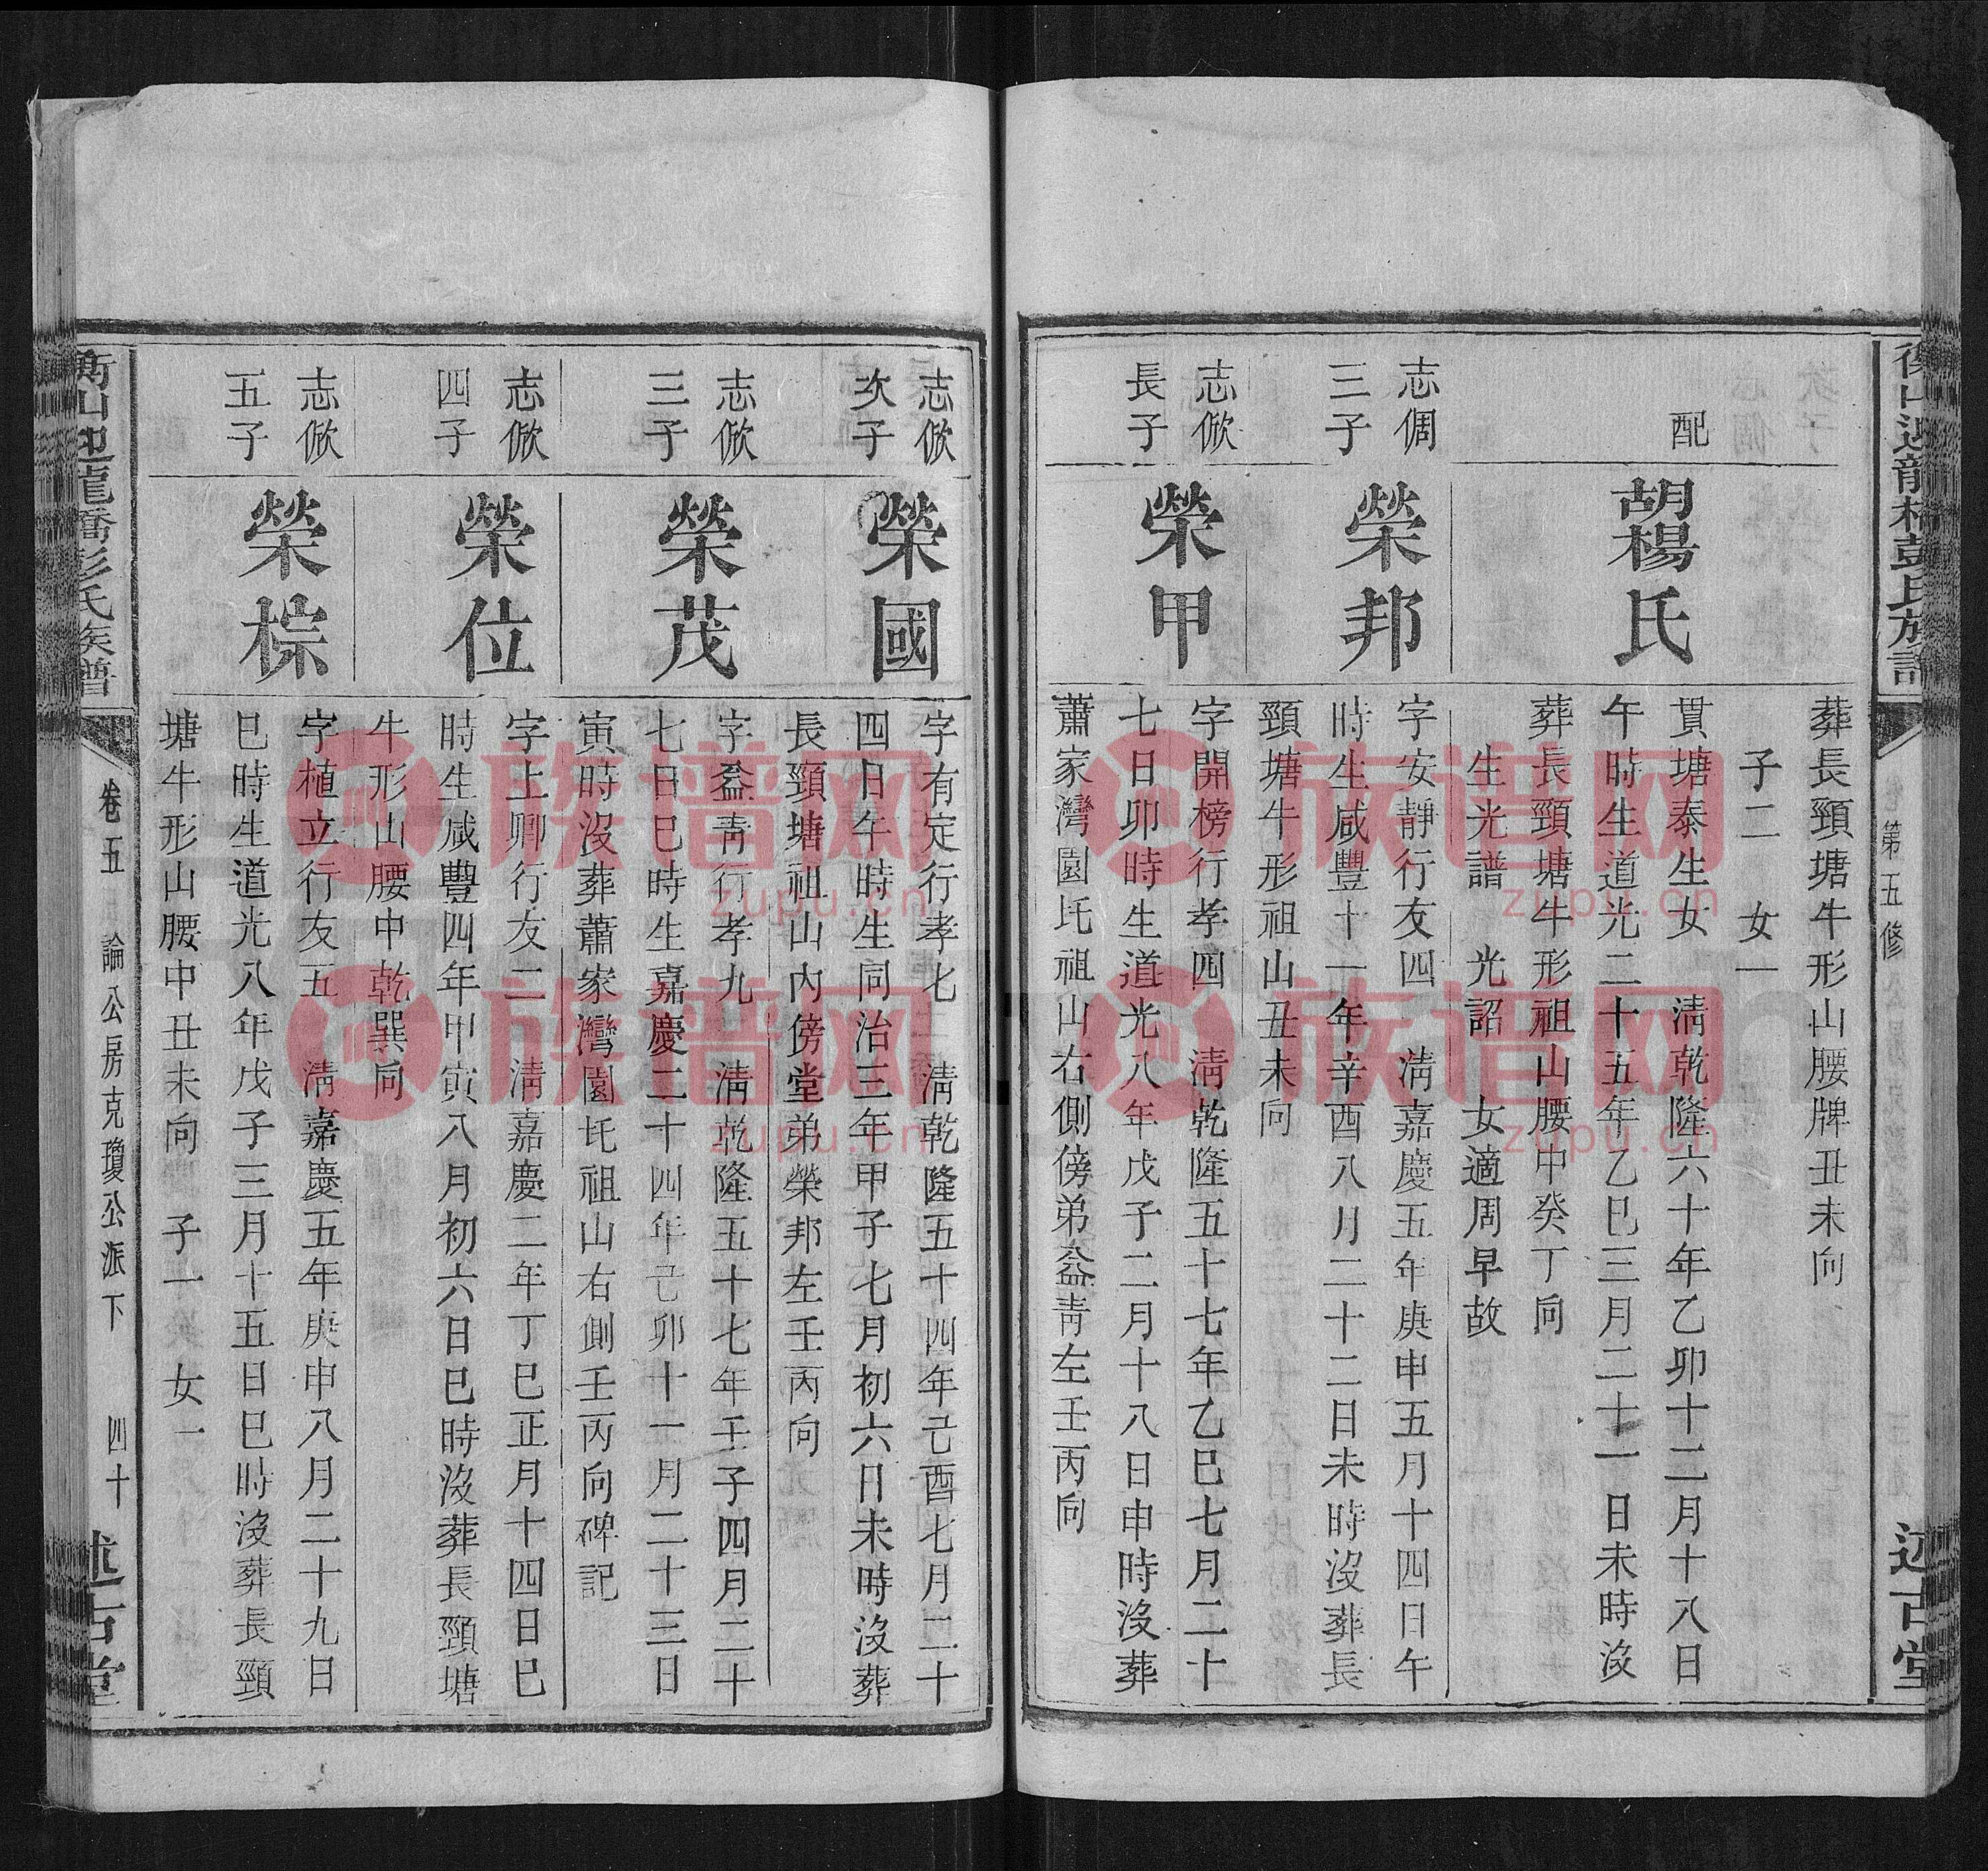 第五修
述古堂
葬長頸塘牛形山腰牌丑未向
子二 女一
配
胡楊氏
貫塘泰生女 淸乾隆六十年乙卯十二月十八日
午時生道光二十五年乙巳三月二十一日未時沒
葬長頸塘牛形祖山腰中癸丁向
生光譜 光詔 女適周早故
志倜
三子
榮邦
字安靜行友四 淸嘉慶五年庚申五月十四日午
時生咸豐十一年辛酉八月二十二日未時沒葬長
頸塘牛形祖山丑未向
志俽
長子
榮甲
字開榜行孝四 淸乾隆五十七年乙巳七月二十
七日卯時生道光八年戊子二月十八日申時沒葬
蕭家灣園圫祖山右側傍弟益靑左壬丙向
志俽
次子
榮國
字有定行孝七 淸乾隆五十四年己酉七月二十
四日午時生同治三年甲子七月初六日未時沒葬
長頸塘祖山內傍堂弟榮邦左壬丙向
志俽
三子
榮茂
字益靑行孝九 淸乾隆五十七年壬子四月二十
七日巳時生嘉慶二十四年己卯十一月二十三日
寅時沒葬蕭家灣園圫祖山右側壬丙向碑記
志俽
四子
榮位
字上卿行友二 淸嘉慶二年丁巳正月十四日巳
時生咸豐四年甲寅八月初六日巳時沒葬長頸塘
牛形山腰中乾巽向
志俽
五子
榮棕
字植立行友五 淸嘉慶五年庚申八月二十九日
巳時生道光八年戊子三月十五日巳時沒葬長頸
塘牛形山腰中丑未向 子一 女一
衡山迎龍橋彭氏族譜
卷五
論公房克瓊公派下
四十
述古堂
族谱网
zupu.cn
族谱网
zupu.cn
族谱网
zupu.cn
族谱网
zupu.cn